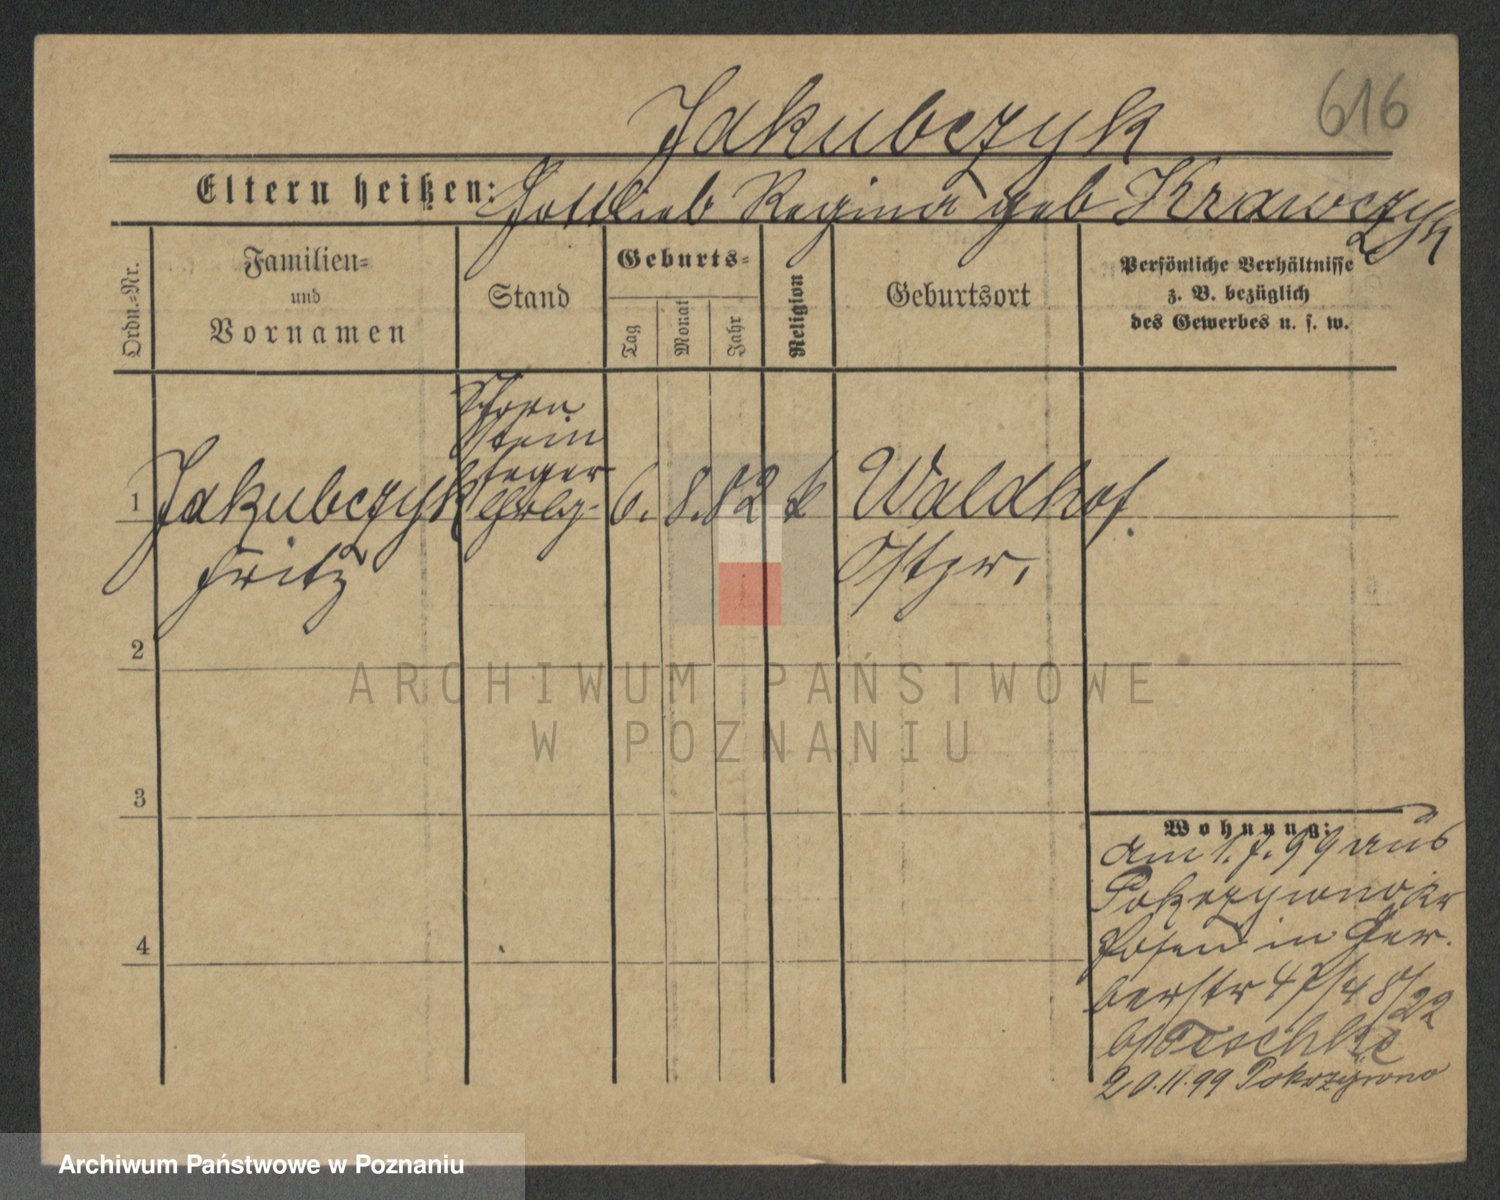 616
Jakubczyk
Eltern heißen: Gottlieb Regina geb Krawczyk
Ordn.-Nr.
Familien-
und
Vornamen
Stand
Geburts-
Tag
Monat
Jahr
Religion
Geburtsort
Persönliche Verhältnisse
z. B. bezüglich
des Gewerbes u. s. w.
Schorn
stein
feger
1 Jakubczyk 6. 8. 82 Waldhof
Fritz Ostpr.
2
ARCHIWUM PAŃSTWOWE
W POZNANIU
3
Wohnung:
am 1. 7. 99 aus
Pokrzywno Kr
Posen in Ger
berstr 47/48/22
b/ Teschke
4
20.11.99 Pokrzywno
Archiwum Państwowe w Poznaniu